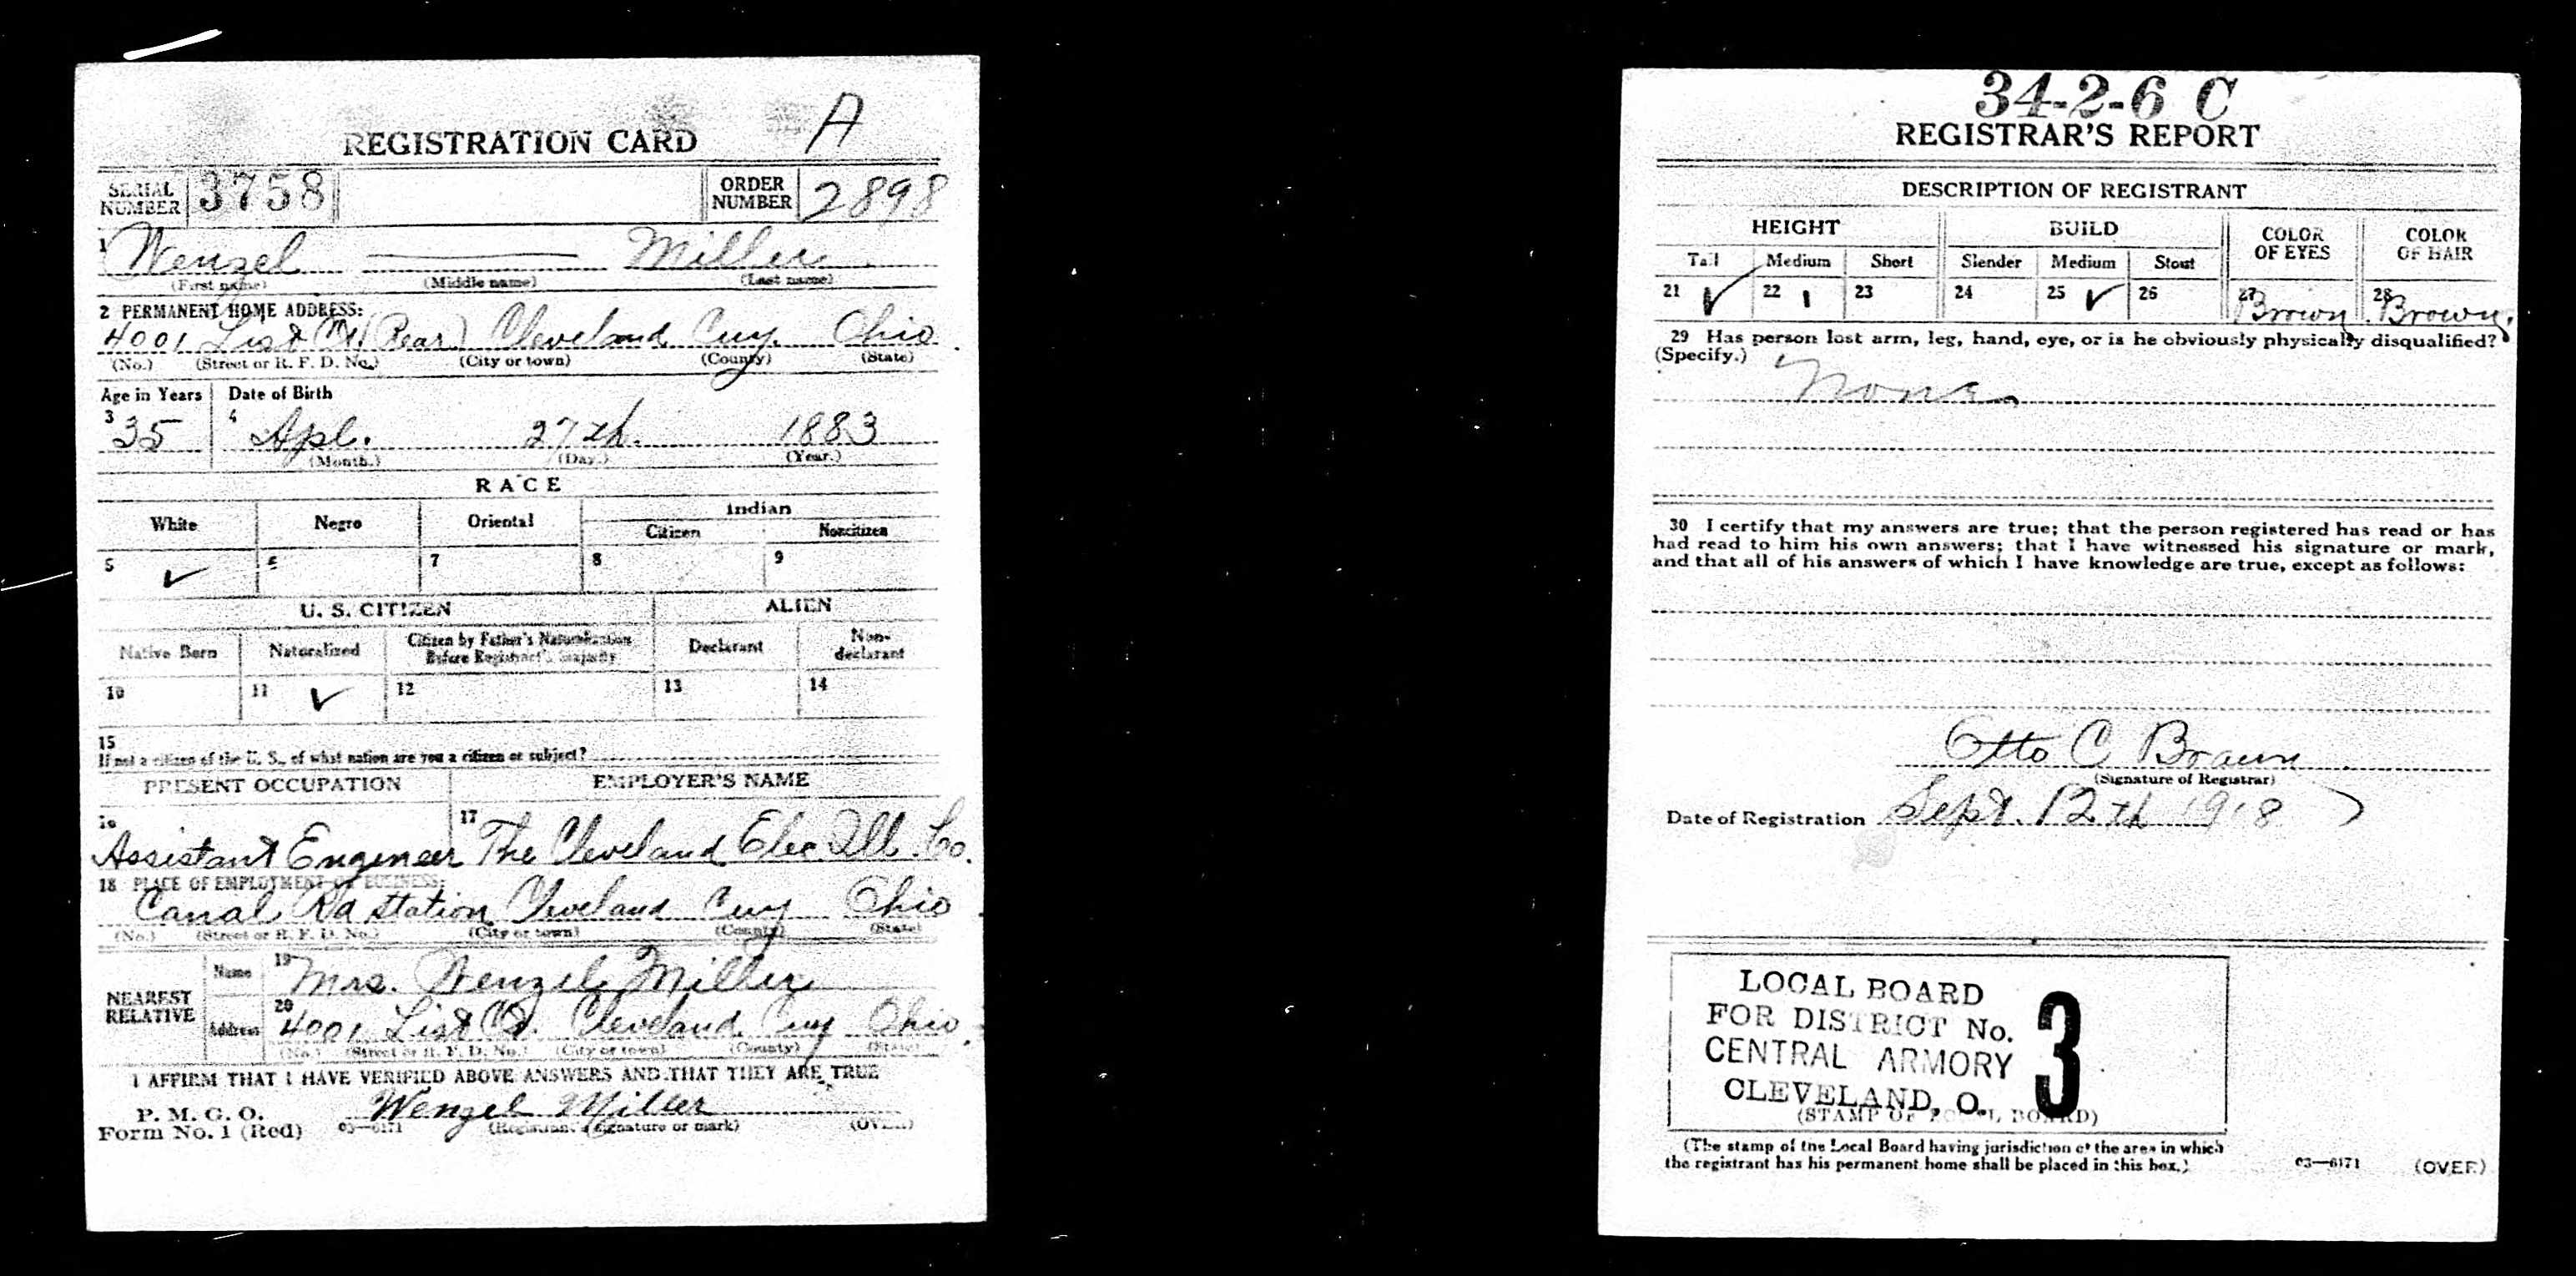 A
REGISTRATION CARD
SERIAL NUMBER 3758 ORDER NUMBER 2898
1 Wenzel Miller
(First name) (Middle name) (Last name)
2 PERMANENT HOME ADDRESS:
4001 List Ct (Rear) Cleveland Cuy. Ohio
(No.) (Street or R. F. D. No.) (City or town) (County) (State)
Age in Years Date of Birth
3 35 4 Apl. 27th. 1883
(Month.) (Day.) (Year.)
RACE
White Negro Oriental Indian
Citizen Noncitizen
5 ✓ 6 7 8 9
U. S. CITIZEN ALIEN
Native Born Naturalized Citizen by Father's Naturalization Before Registrant's Majority Declarant Non-declarant
10 11 ✓ 12 13 14
15
If not a citizen of the U. S., of what nation are you a citizen or subject?
PRESENT OCCUPATION EMPLOYER'S NAME
16 Assistant Engineer 17 The Cleveland Elec. Ill. Co.
18 PLACE OF EMPLOYMENT OR BUSINESS:
Canal Rd station Cleveland Cuy Ohio
(No.) (Street or R. F. D. No.) (City or town) (County) (State)
NEAREST RELATIVE
Name 19 Mrs. Wenzel Miller
Address 20 4001 List Ct. Cleveland Cuy Ohio
(No.) (Street or R. F. D. No.) (City or town) (County) (State)
I AFFIRM THAT I HAVE VERIFIED ABOVE ANSWERS AND THAT THEY ARE TRUE
P. M. G. O.
Form No. 1 (Red) 03—6171 Wenzel Miller
(Registrant's signature or mark) (OVER)
34-2-6 C
REGISTRAR'S REPORT
DESCRIPTION OF REGISTRANT
HEIGHT BUILD COLOR OF EYES COLOR OF HAIR
Tall Medium Short Slender Medium Stout
21 ✓ 22 23 24 25 ✓ 26 27 Brown 28 Brown
29 Has person lost arm, leg, hand, eye, or is he obviously physically disqualified?
(Specify.)
None
30 I certify that my answers are true; that the person registered has read or has
had read to him his own answers; that I have witnessed his signature or mark,
and that all of his answers of which I have knowledge are true, except as follows:
Otto C Braun
(Signature of Registrar)
Date of Registration Sept. 12th 1918
LOCAL BOARD
FOR DISTRICT No. 3
CENTRAL ARMORY
CLEVELAND, O.
(STAMP OF LOCAL BOARD)
(The stamp of the Local Board having jurisdiction of the area in which
the registrant has his permanent home shall be placed in this box.)
03—6171 (OVER)